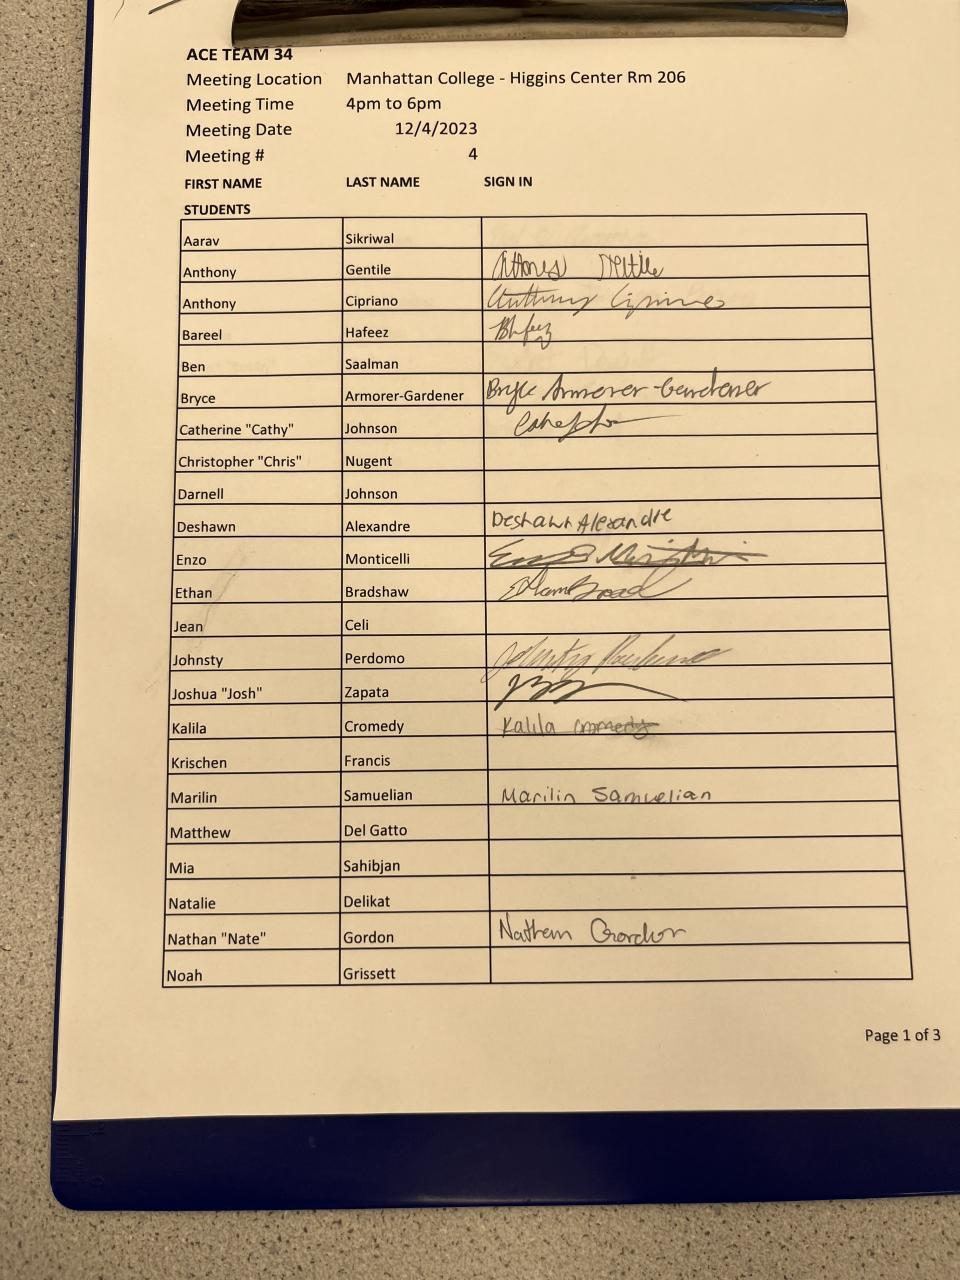 ACE TEAM 34
Meeting Location Manhattan College - Higgins Center Rm 206
Meeting Time 4pm to 6pm
Meeting Date 12/4/2023
Meeting # 4
FIRST NAME LAST NAME SIGN IN
STUDENTS
Aarav Sikriwal
Anthony Gentile
Anthony Cipriano Anthony
Bareel Hafeez Bhfeez
Ben Saalman
Bryce Armorer-Gardener Bryce Armorer-Gardener
Catherine "Cathy" Johnson
Christopher "Chris" Nugent
Darnell Johnson
Deshawn Alexandre Deshawn Alexandre
Enzo Monticelli Enzo
Ethan Bradshaw
Jean Celi
Johnsty Perdomo Johnsty Perdomo
Joshua "Josh" Zapata
Kalila Cromedy Kalila Cromedy
Krischen Francis
Marilin Samuelian Marilin Samuelian
Matthew Del Gatto
Mia Sahibjan
Natalie Delikat
Nathan "Nate" Gordon Nathan Gordon
Noah Grissett
Page 1 of 3